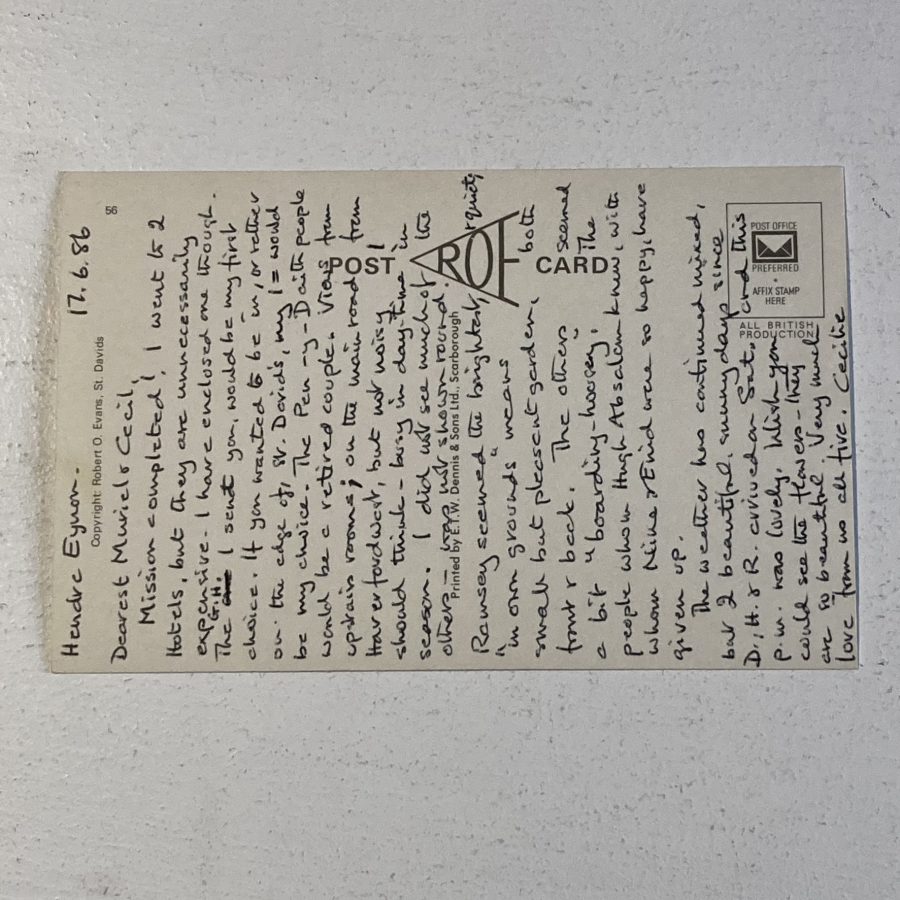 Hendre Eynon. 17.6.86
Dearest Muriel & Cecil,
Mission completed! I went to 2
Hotels, but they are unnecessarily
expensive - I have enclosed one though.
The G.H. I sent you, would be my first
choice. If you wanted to be in, or rather
on the edge of, St. Davids, my 1= would
be my choice. The Pen-y-Daith people
would be a retired couple. Views from
upstairs rooms; on the main road from
Haverfordwest, but not noisy I
should think - busy in day-time in
season. I did not see much of the
others - was not shown round.
Ramsey seemed the brightest, & quiet;
"in own grounds" means
small but pleasant garden, both
front & back. The others seemed
a bit "boarding-housey". The
people whom Hugh Absalom knew, with
whom Nina & Enid were so happy, have
given up.
The weather has continued mixed,
but 2 beautiful sunny days since
D, H. & R. arrived on Sat, and this
p.m. was lovely. Wish you
could see the flowers - they
are so beautiful. Very much
love from us all five. Cecilie
56
Copyright: Robert O. Evans, St. Davids
POST CARD
ROE
Printed by E.T.W. Dennis & Sons Ltd., Scarborough
POST OFFICE
PREFERRED
AFFIX STAMP
HERE
ALL BRITISH
PRODUCTION